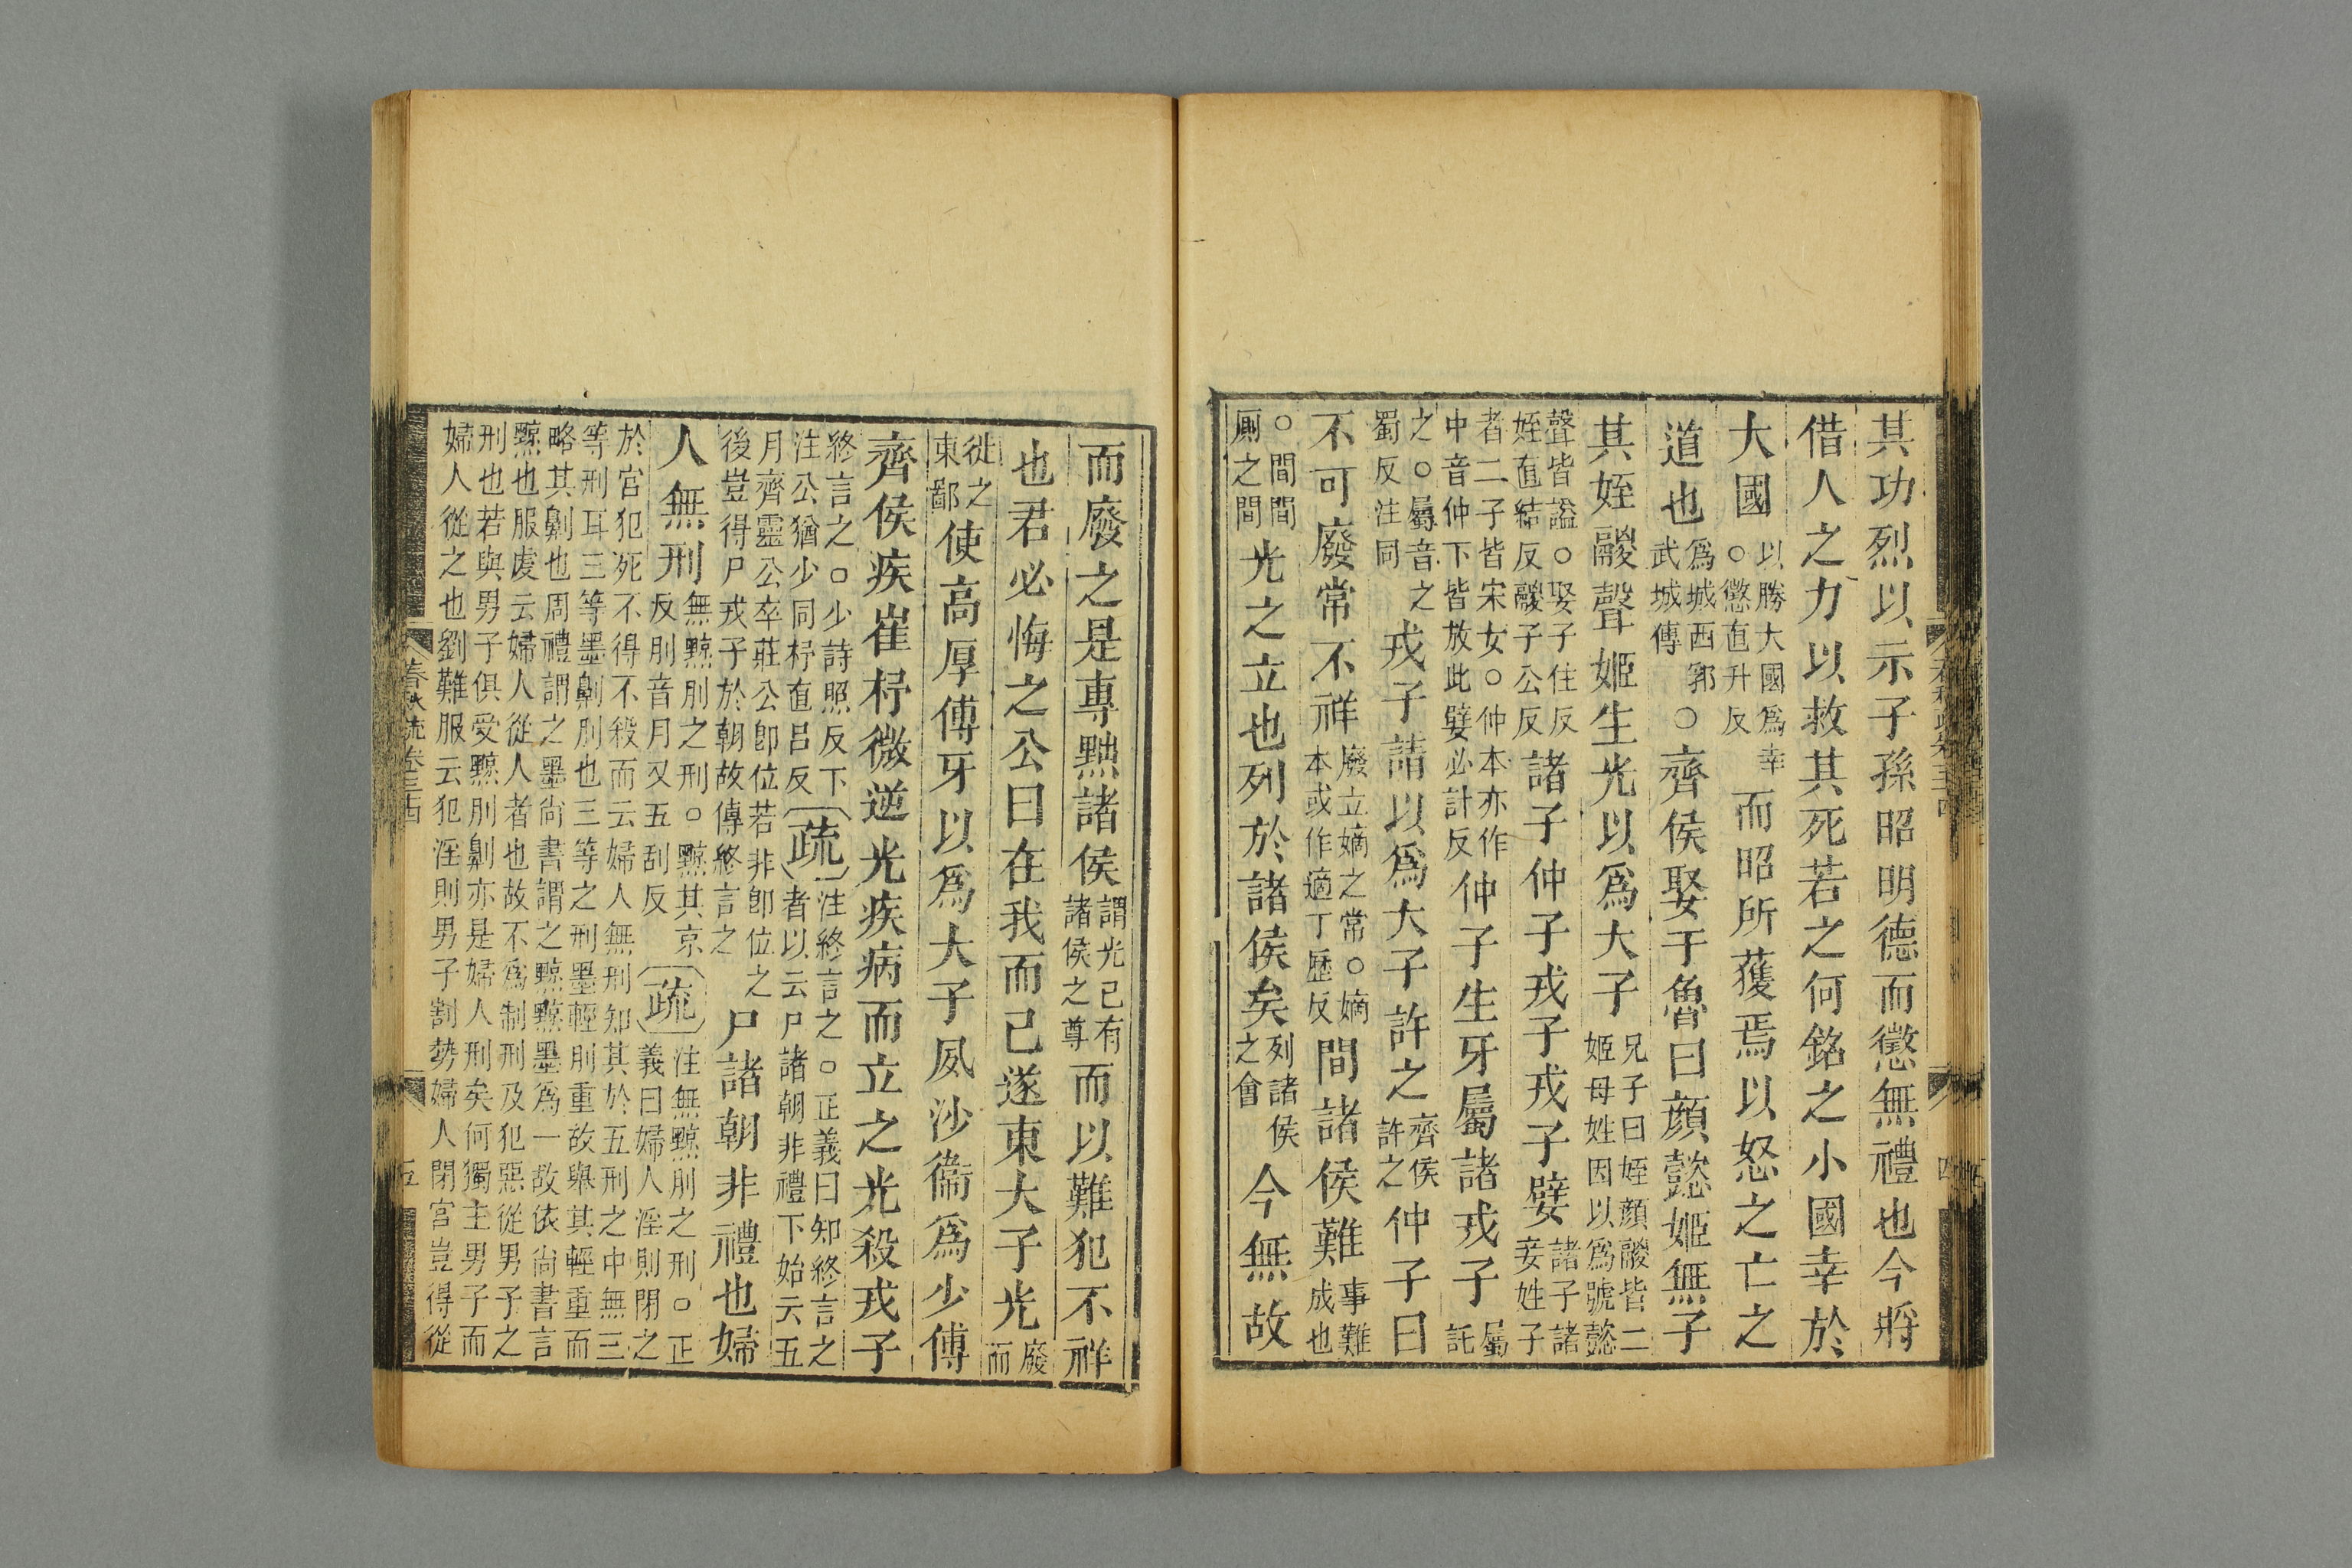 其功烈以示子孫昭明德而懲無禮也今將
借人之力以救其死若之何銘之小國幸於
大國以勝大國爲幸○懲直升反而昭所獲焉以怒之亡之
道也爲城西郛○武城傳齊侯娶于魯曰顏懿姬無子
其姪鬷聲姬生光以爲大子兄子曰姪顏鬷皆二姬母姓因以爲號懿
聲皆謚○娶子住反姪直結反鬷子公反諸子仲子戎子戎子嬖諸子諸妾姓子
者二子皆宋女○仲本亦作中音仲下皆放此嬖必計反仲子生牙屬諸戎子屬託
之○屬音之蜀反注同戎子請以爲大子許之齊侯許之仲子曰
不可廢常不祥廢立嫡之常○嫡本或作適丁歷反間諸侯難事難成也
○間間厠之間光之立也列於諸侯矣列諸侯之會今無故
而廢之是專黜諸侯謂光已有諸侯之尊而以難犯不祥
也君必悔之公曰在我而已遂東大子光廢而
徙之東鄙使高厚傅牙以爲大子夙沙衞爲少傅
齊侯疾崔杼微逆光疾病而立之光殺戎子
終言之○少詩照反下注公猶少同杼直呂反疏注終言之○正義曰知終言之者以云尸諸朝非禮下始云五
月齊靈公卒莊公卽位若非卽位之後豈得尸戎子於朝故傳終言之尸諸朝非禮也婦
人無刑無黥刖之刑○黥其京反刖音月又五刮反疏注無黥刖之刑○正義曰婦人淫則閉之
於宮犯死不得不殺而云婦人無刑知其於五刑之中無三
等刑耳三等墨劓刖也三等之刑墨輕刖重故舉其輕重而
略其劓也周禮謂之墨尚書謂之黥黥墨爲一故依尚書言
黥也服虔云婦人從人者也故不爲制刑及犯惡從男子之
刑也若與男子俱受黥刖劓亦是婦人刑矣何獨主男子而
婦人從之也劉難服云犯淫則男子割勢婦人閉宮豈得從
春秋疏卷三十四
五